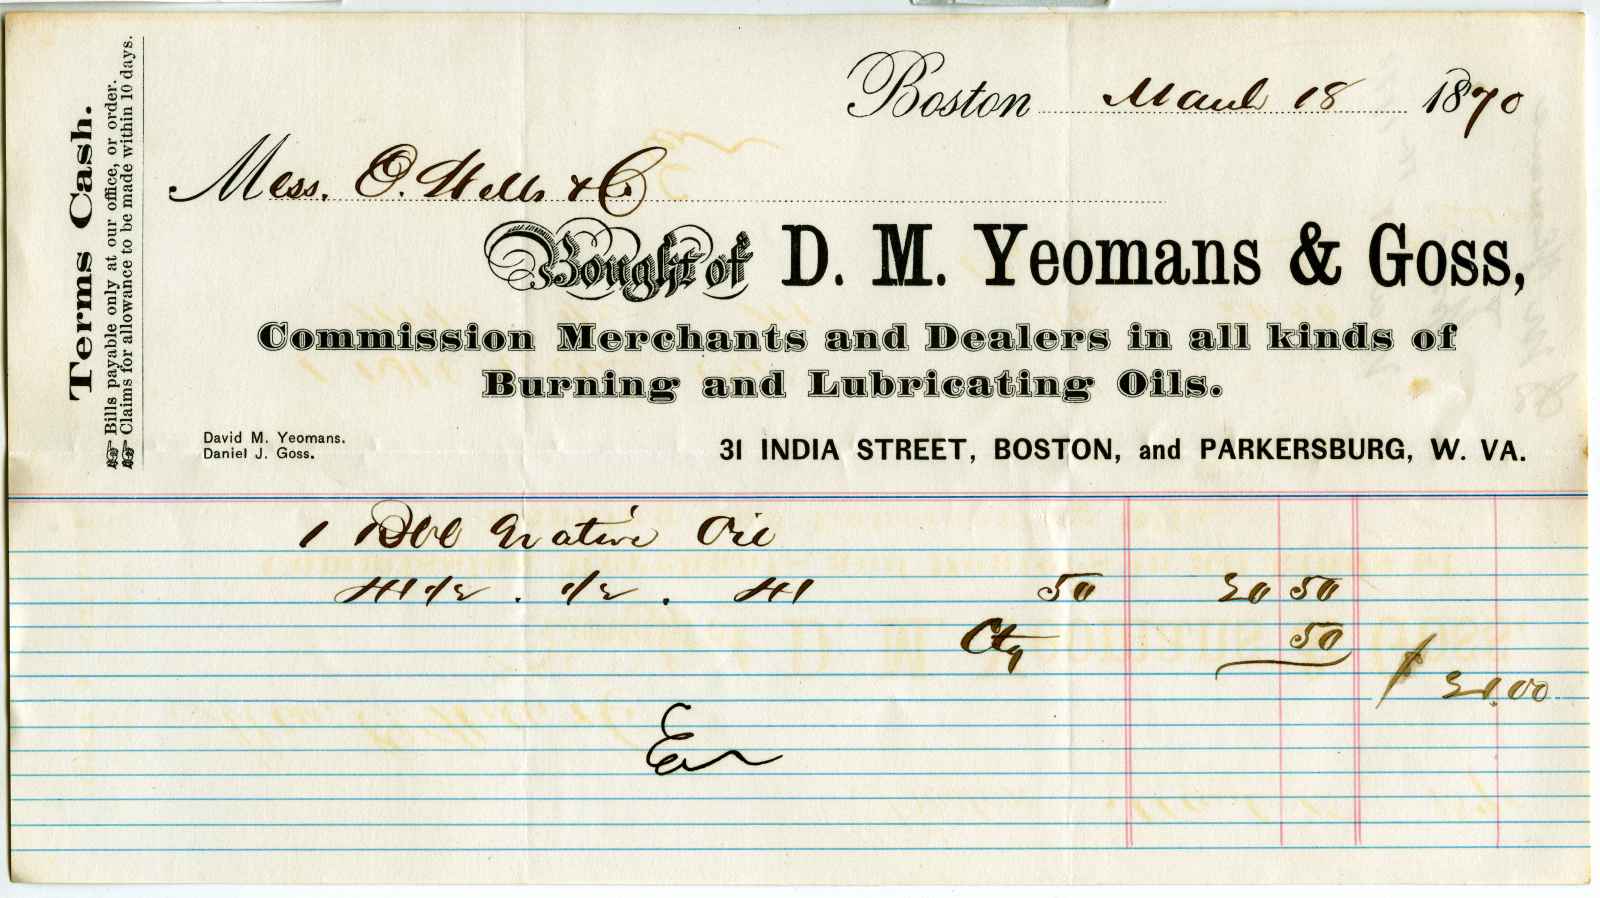 Terms Cash.
☞ Bills payable only at our office, or order.
☞ Claims for allowance to be made within 10 days.
Boston March 18 1870
Mess. O. Wells & Co
Bought of D. M. Yeomans & Goss,
Commission Merchants and Dealers in all kinds of
Burning and Lubricating Oils.
David M. Yeomans.
Daniel J. Goss.
31 INDIA STREET, BOSTON, and PARKERSBURG, W. VA.
1 Bbl Oil
41 1/2 . 1/2 . 41 50 20 50
Ctg 50
$ 21.00